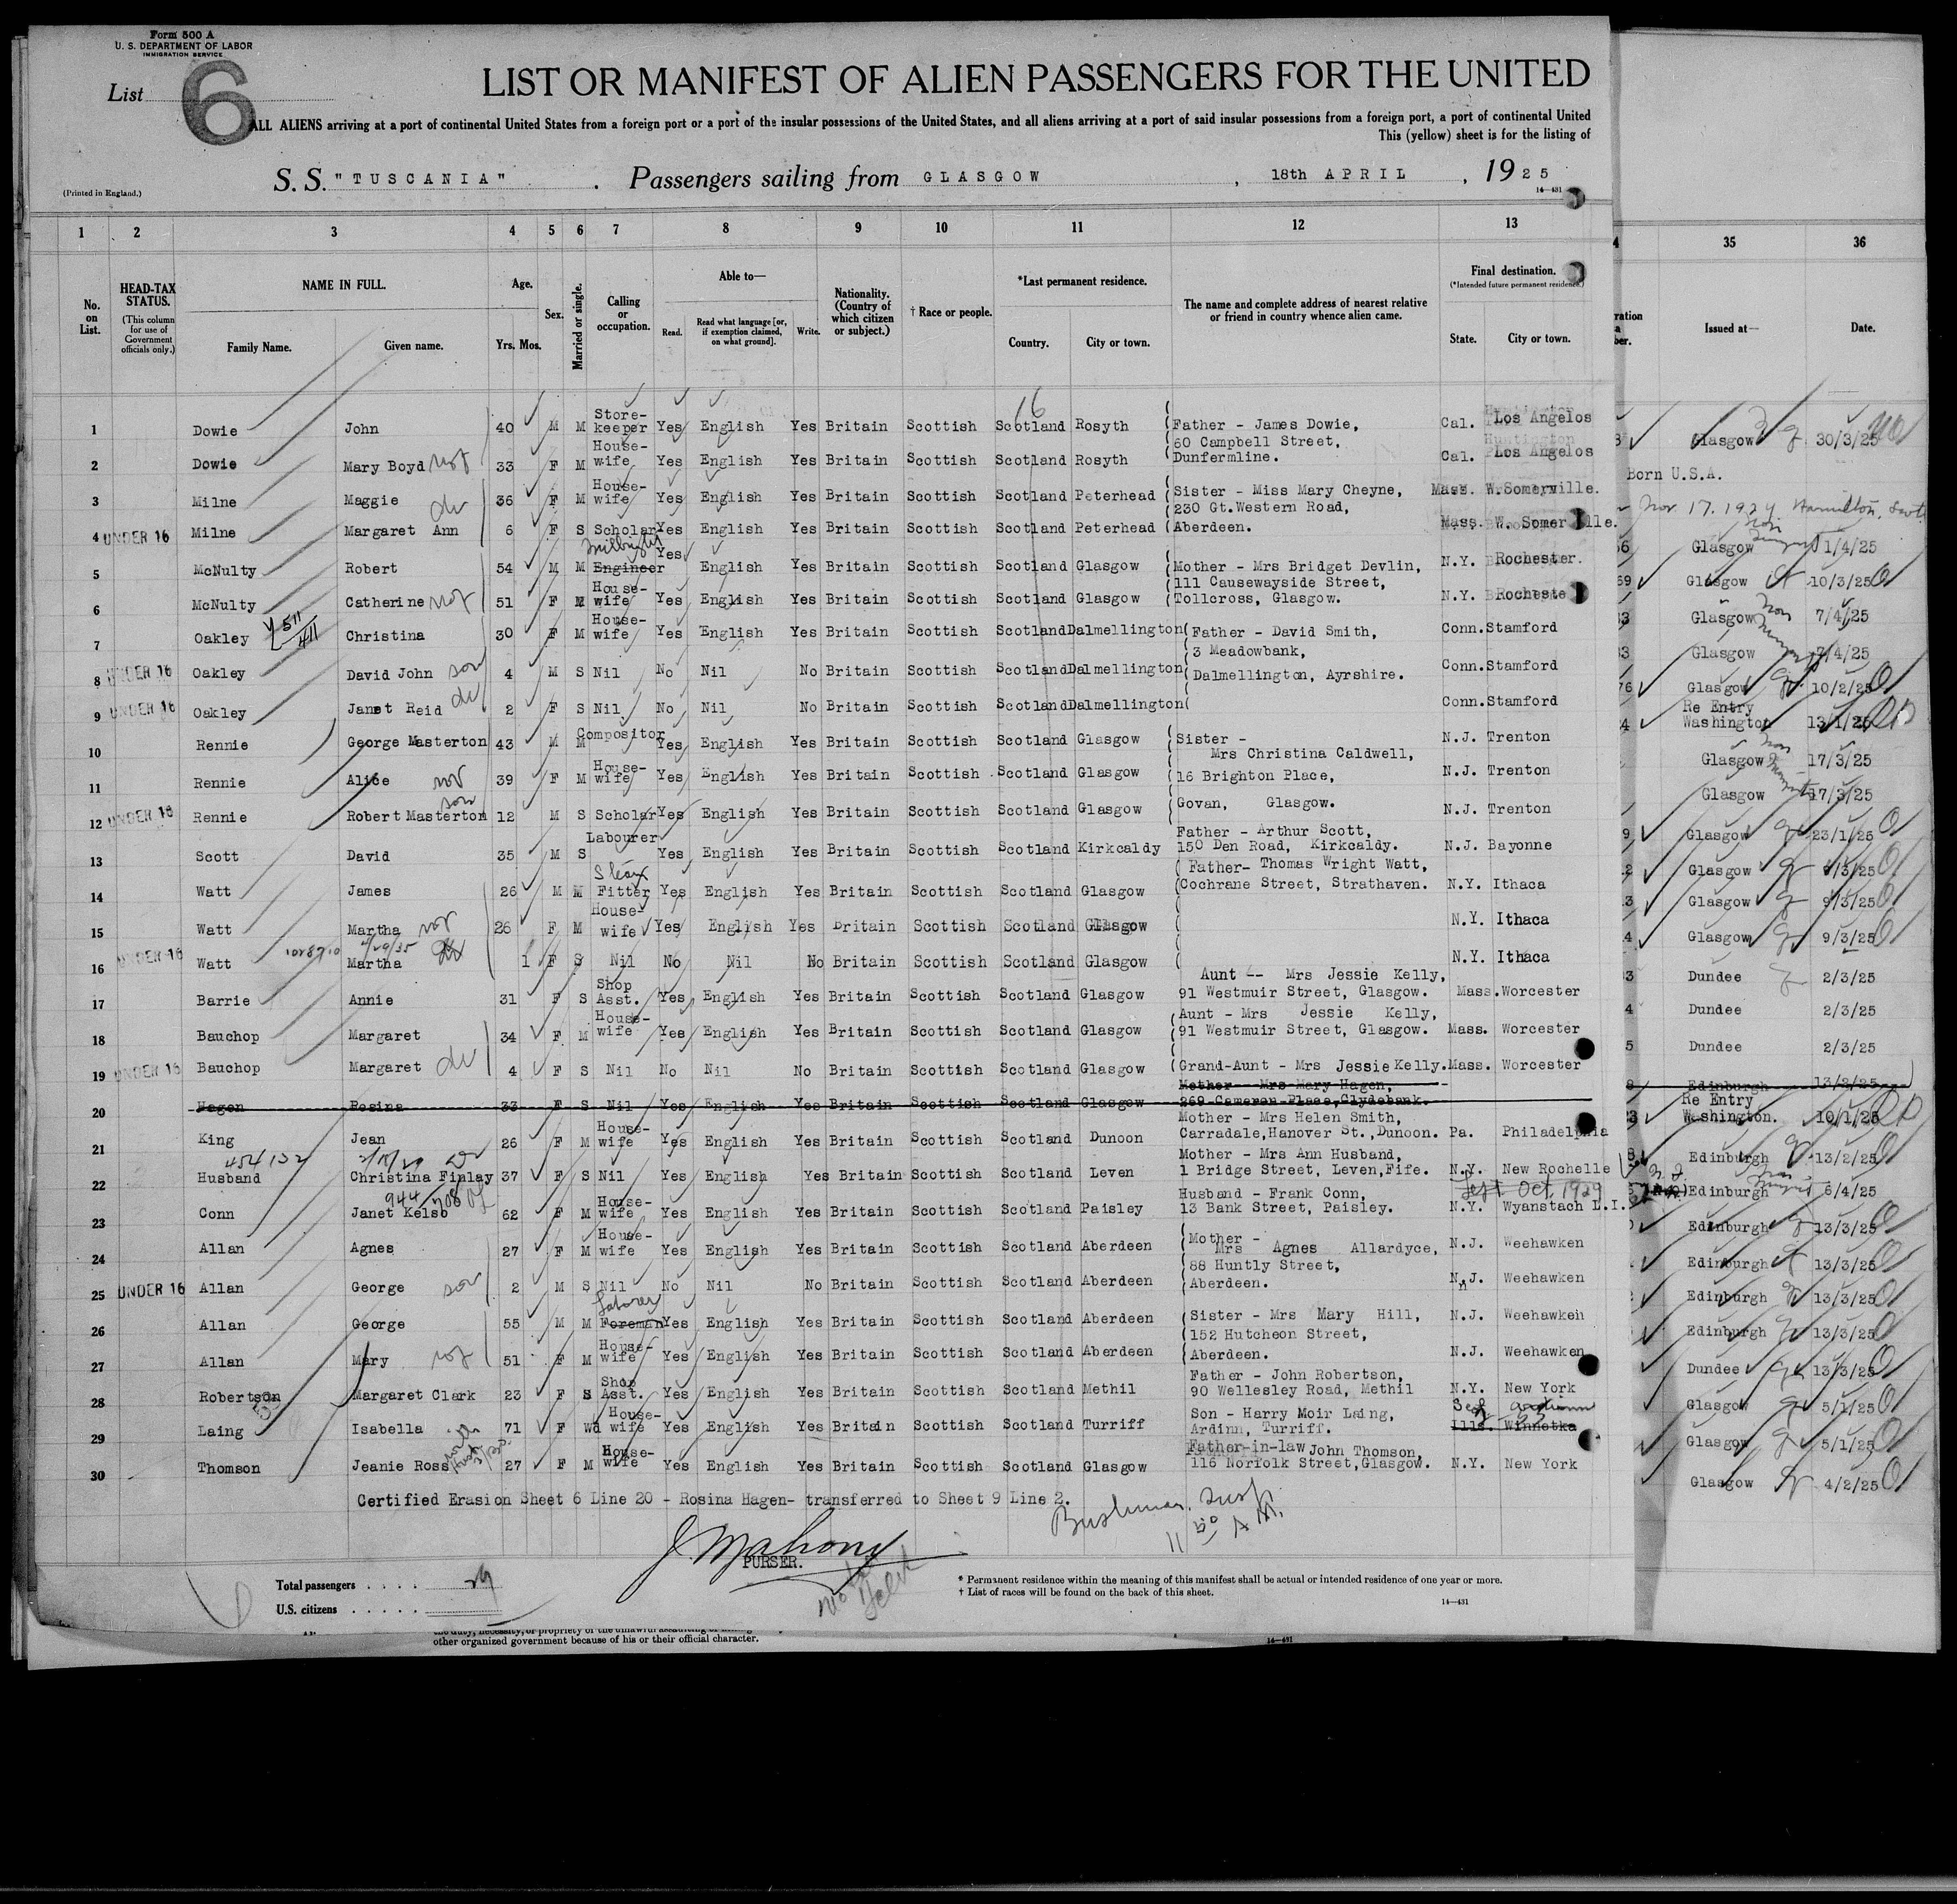 Form 500 A
U. S. DEPARTMENT OF LABOR
IMMIGRATION SERVICE
List 6
LIST OR MANIFEST OF ALIEN PASSENGERS FOR THE UNITED
ALL ALIENS arriving at a port of continental United States from a foreign port or a port of the insular possessions of the United States, and all aliens arriving at a port of said insular possessions from a foreign port, a port of continental United
This (yellow) sheet is for the listing of
(Printed in England.)
S. S. "TUSCANIA". Passengers sailing from GLASGOW, 18th APRIL, 1925
14—431
1 2 3 4 5 6 7 8 9 10 11 12 13 35 36
No. on List.
HEAD-TAX STATUS. (This column for use of Government officials only.)
NAME IN FULL.
Family Name. Given name.
Age. Yrs. Mos.
Sex.
Married or single.
Calling or occupation.
Able to—
Read. Read what language [or, if exemption claimed, on what ground]. Write.
Nationality. (Country of which citizen or subject.)
† Race or people.
*Last permanent residence.
Country. City or town.
The name and complete address of nearest relative or friend in country whence alien came.
Final destination.
(*Intended future permanent residence.)
State. City or town.
Issued at— Date.
1 Dowie John 40 M M Store-keeper Yes English Yes Britain Scottish Scotland Rosyth Father - James Dowie, Cal. Los Angelos Glasgow 30/3/25
60 Campbell Street,
2 Dowie Mary Boyd 33 F M House-wife Yes English Yes Britain Scottish Scotland Rosyth Dunfermline. Cal. Los Angelos
Born U.S.A.
3 Milne Maggie 36 F M House-wife Yes English Yes Britain Scottish Scotland Peterhead Sister - Miss Mary Cheyne, Mass. W.Somerville.
230 Gt.Western Road,
Nov 17. 1924 Hamilton,
4 UNDER 16 Milne Margaret Ann 6 F S Scholar Yes English Yes Britain Scottish Scotland Peterhead Aberdeen. Mass. W. Somer lle.
Glasgow 1/4/25
5 McNulty Robert 54 M M Engineer Yes English Yes Britain Scottish Scotland Glasgow Mother - Mrs Bridget Devlin, N.Y. Rochester.
111 Causewayside Street,
Glasgow 10/3/25
6 McNulty Catherine 51 F M House-wife Yes English Yes Britain Scottish Scotland Glasgow Tollcross, Glasgow. N.Y. Rocheste
Glasgow 7/4/25
7 Oakley Christina 30 F M House-wife Yes English Yes Britain Scottish Scotland Dalmellington Father - David Smith, Conn. Stamford
3 Meadowbank,
Glasgow 7/4/25
8 UNDER 16 Oakley David John son 4 M S Nil No Nil No Britain Scottish Scotland Dalmellington Dalmellington, Ayrshire. Conn. Stamford
Glasgow 10/2/25
9 UNDER 16 Oakley Janet Reid 2 F S Nil No Nil No Britain Scottish Scotland Dalmellington Conn. Stamford
Re Entry Washington 13/1/25
10 Rennie George Masterton 43 M M Compositor Yes English Yes Britain Scottish Scotland Glasgow Sister - N.J. Trenton
Mrs Christina Caldwell,
Glasgow 17/3/25
11 Rennie Alice 39 F M House-wife Yes English Yes Britain Scottish Scotland Glasgow 16 Brighton Place, N.J. Trenton
Glasgow 17/3/25
12 UNDER 16 Rennie Robert Masterton son 12 M S Scholar Yes English Yes Britain Scottish Scotland Glasgow Govan, Glasgow. N.J. Trenton
Glasgow 23/1/25
13 Scott David 35 M S Labourer Yes English Yes Britain Scottish Scotland Kirkcaldy Father - Arthur Scott, 150 Den Road, Kirkcaldy. N.J. Bayonne
Glasgow 9/3/25
14 Watt James 26 M M Fitter Yes English Yes Britain Scottish Scotland Glasgow Father- Thomas Wright Watt, Cochrane Street, Strathaven. N.Y. Ithaca
Glasgow 9/3/25
15 Watt Martha 26 F M House-wife Yes English Yes Britain Scottish Scotland Glasgow N.Y. Ithaca
Glasgow 9/3/25
16 UNDER 16 Watt Martha 1 F S Nil No Nil No Britain Scottish Scotland Glasgow N.Y. Ithaca
Dundee 2/3/25
17 Barrie Annie 31 F S Shop Asst. Yes English Yes Britain Scottish Scotland Glasgow Aunt -- Mrs Jessie Kelly, 91 Westmuir Street, Glasgow. Mass. Worcester
Dundee 2/3/25
18 Bauchop Margaret 34 F M House-wife Yes English Yes Britain Scottish Scotland Glasgow Aunt - Mrs Jessie Kelly, 91 Westmuir Street, Glasgow. Mass. Worcester
Dundee 2/3/25
19 UNDER 16 Bauchop Margaret 4 F S Nil No Nil No Britain Scottish Scotland Glasgow Grand-Aunt - Mrs Jessie Kelly. Mass. Worcester
Edinburgh 13/2/25
20 Hagen Rosina 33 F S Nil Yes English Yes Britain Scottish Scotland Glasgow Mother - Mrs Mary Hagen, 269 Cameron Place, Clydebank.
Re Entry Washington. 10/1/25
21 King Jean 26 F M House-wife Yes English Yes Britain Scottish Scotland Dunoon Mother - Mrs Helen Smith, Carradale, Hanover St., Dunoon. Pa. Philadelphia
Edinburgh 13/2/25
22 Husband Christina Finlay 37 F S Nil Yes English Yes Britain Scottish Scotland Leven Mother - Mrs Ann Husband, 1 Bridge Street, Leven, Fife. N.Y. New Rochelle
Edinburgh 6/4/25
23 Conn Janet Kelso 62 F M House-wife Yes English Yes Britain Scottish Scotland Paisley Husband - Frank Conn, 13 Bank Street, Paisley. N.Y. Wyanstach L.I.
Edinburgh 13/3/25
24 Allan Agnes 27 F M House-wife Yes English Yes Britain Scottish Scotland Aberdeen Mother - Mrs Agnes Allardyce, N.J. Weehawken
88 Huntly Street,
Edinburgh 13/3/25
25 UNDER 16 Allan George son 2 M S Nil No Nil No Britain Scottish Scotland Aberdeen Aberdeen. N.J. Weehawken
Edinburgh 13/3/25
26 Allan George 55 M M Foreman Laborer Yes English Yes Britain Scottish Scotland Aberdeen Sister - Mrs Mary Hill, N.J. Weehawken
152 Hutcheon Street,
Edinburgh 13/3/25
27 Allan Mary 51 F M House-wife Yes English Yes Britain Scottish Scotland Aberdeen Aberdeen. N.J. Weehawken
Dundee 13/3/25
28 Robertson Margaret Clark 23 F S Shop Asst. Yes English Yes Britain Scottish Scotland Methil Father - John Robertson, 90 Wellesley Road, Methil N.Y. New York
Glasgow 5/1/25
29 Laing Isabella 71 F Wd House-wife Yes English Yes Britain Scottish Scotland Turriff Son - Harry Moir Laing, Ardinn, Turriff. Ills. Winnetka
Glasgow 5/1/25
30 Thomson Jeanie Ross 27 F M House-wife Yes English Yes Britain Scottish Scotland Glasgow Father-in-law John Thomson, 116 Norfolk Street, Glasgow. N.Y. New York
Glasgow 4/2/25
Certified Erasion Sheet 6 Line 20 - Rosina Hagen- transferred to Sheet 9 Line 2.
J. Mahony
PURSER.
Total passengers . . . . 29
U.S. citizens . . . . .
* Permanent residence within the meaning of this manifest shall be actual or intended residence of one year or more.
† List of races will be found on the back of this sheet.
14—431
other organized government because of his or their official character.
14—431